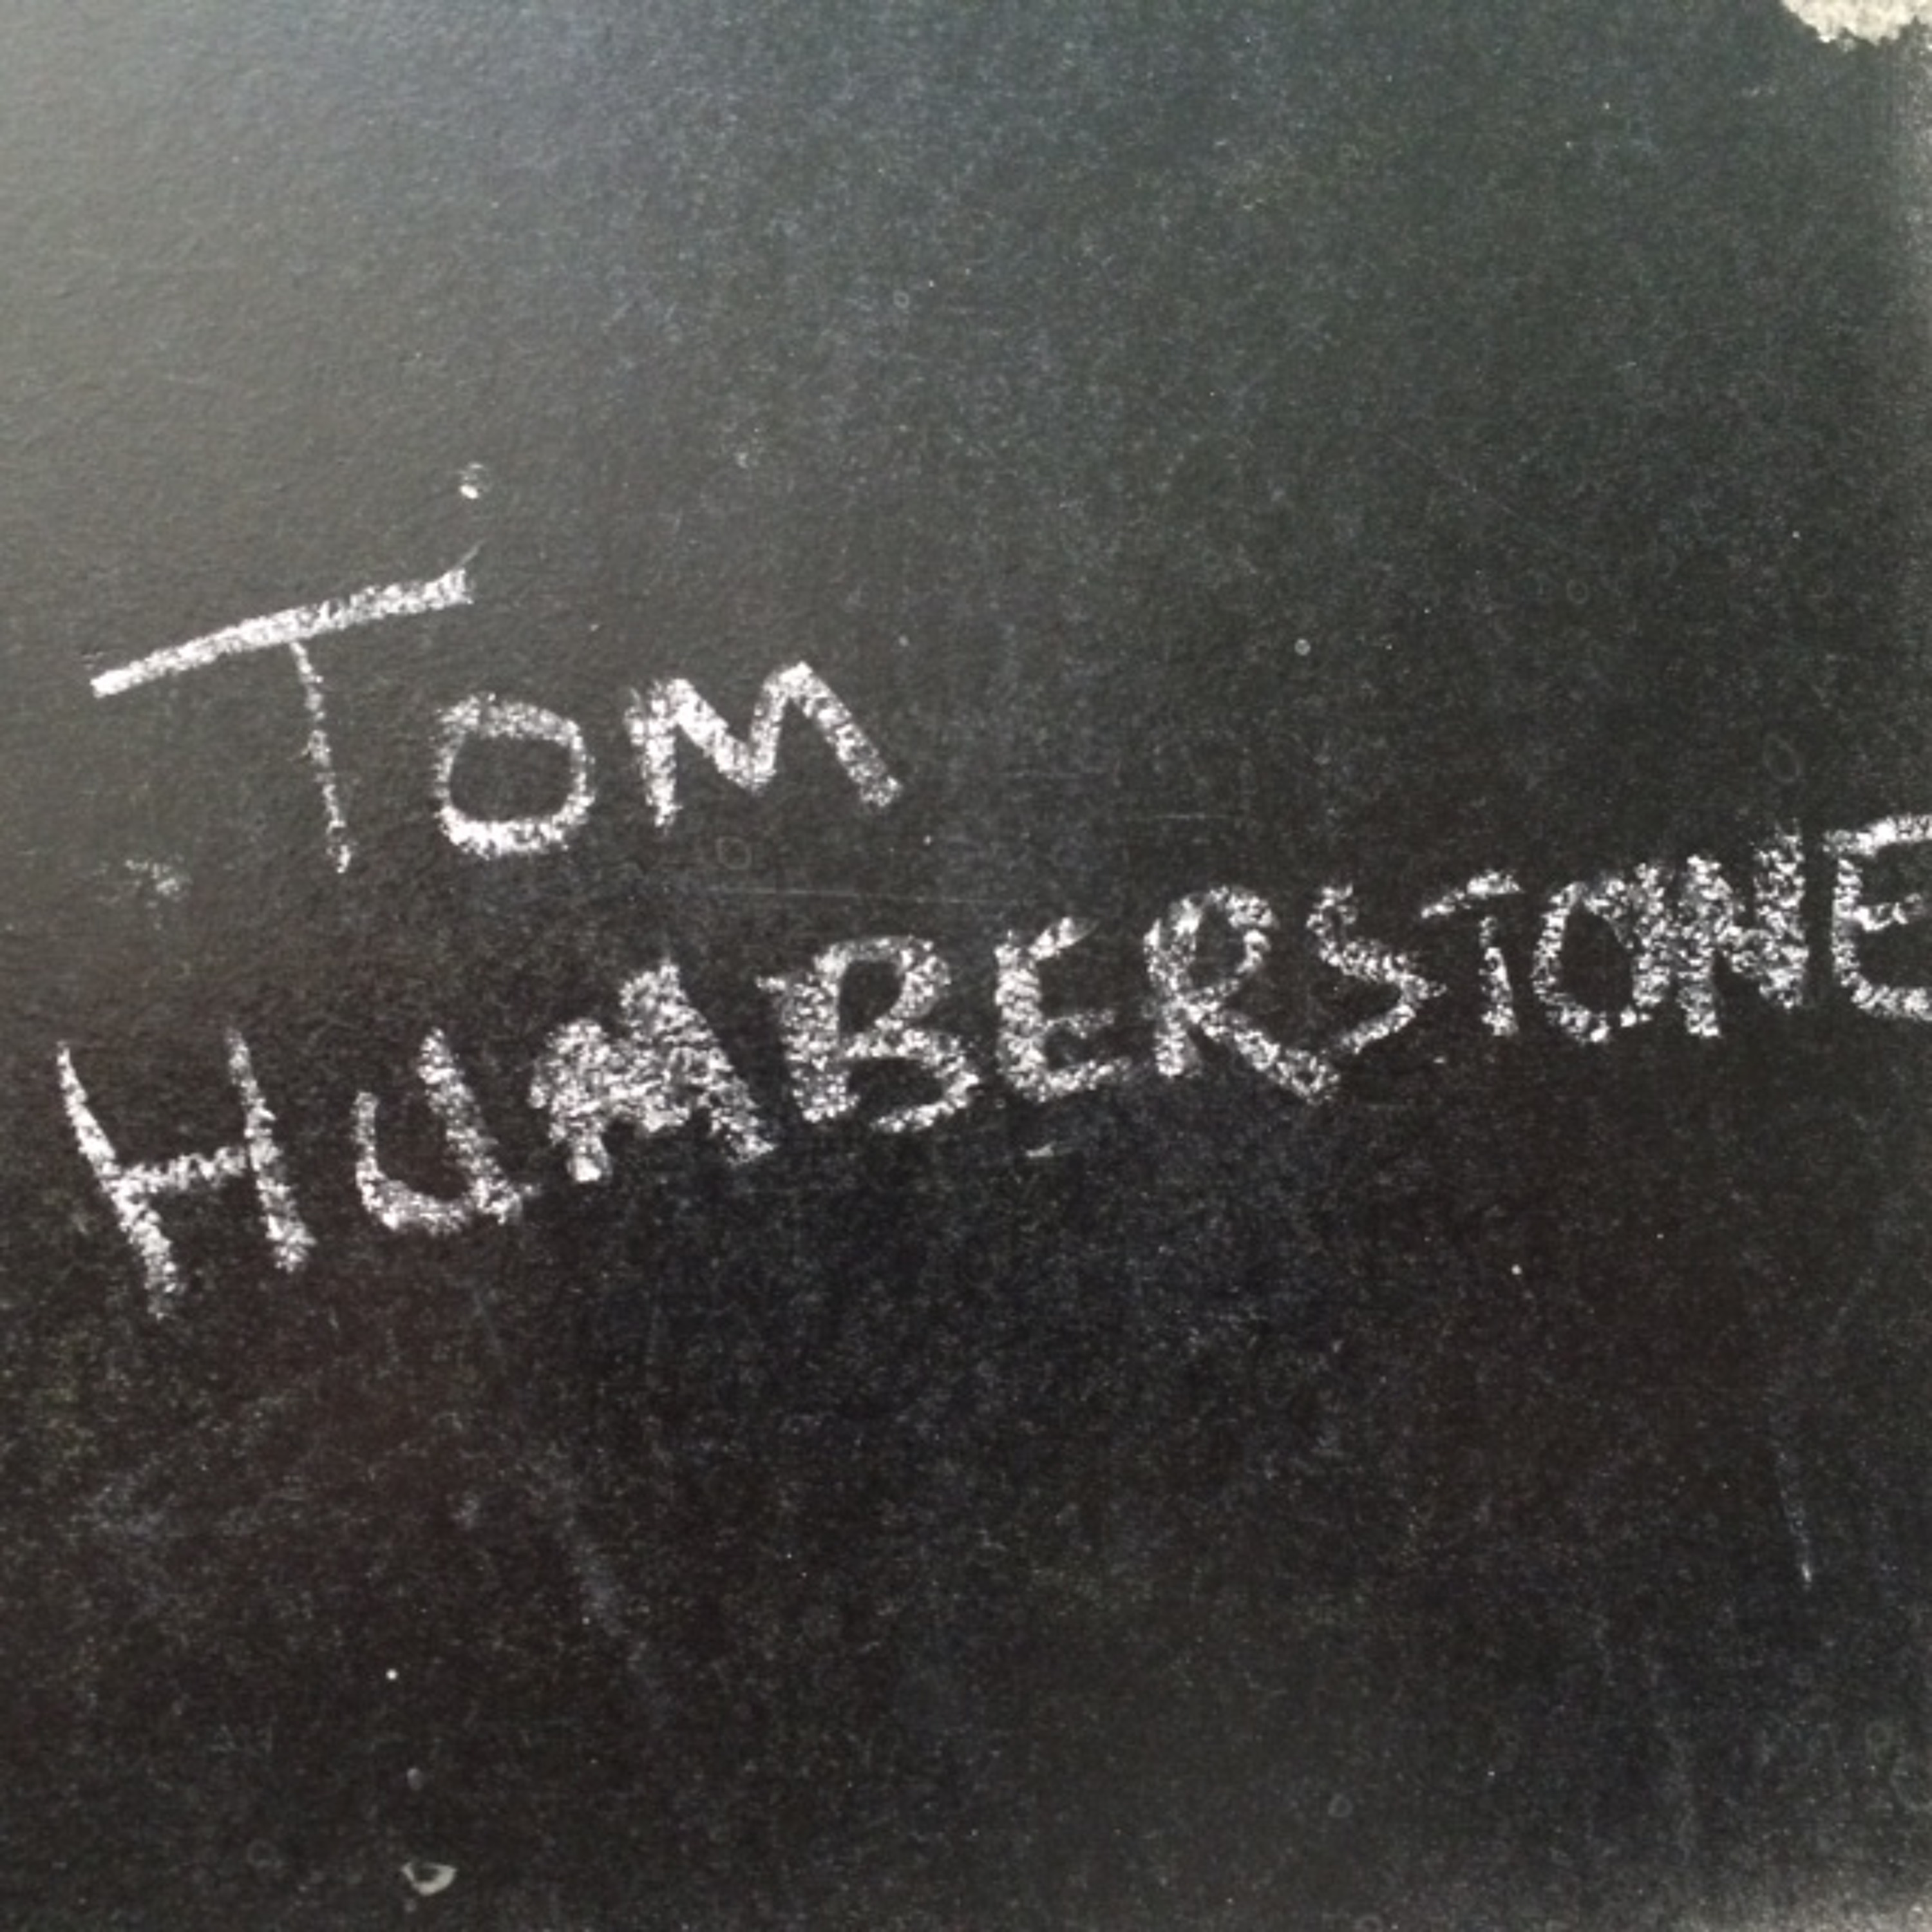 TOM
HUMBERSTONE